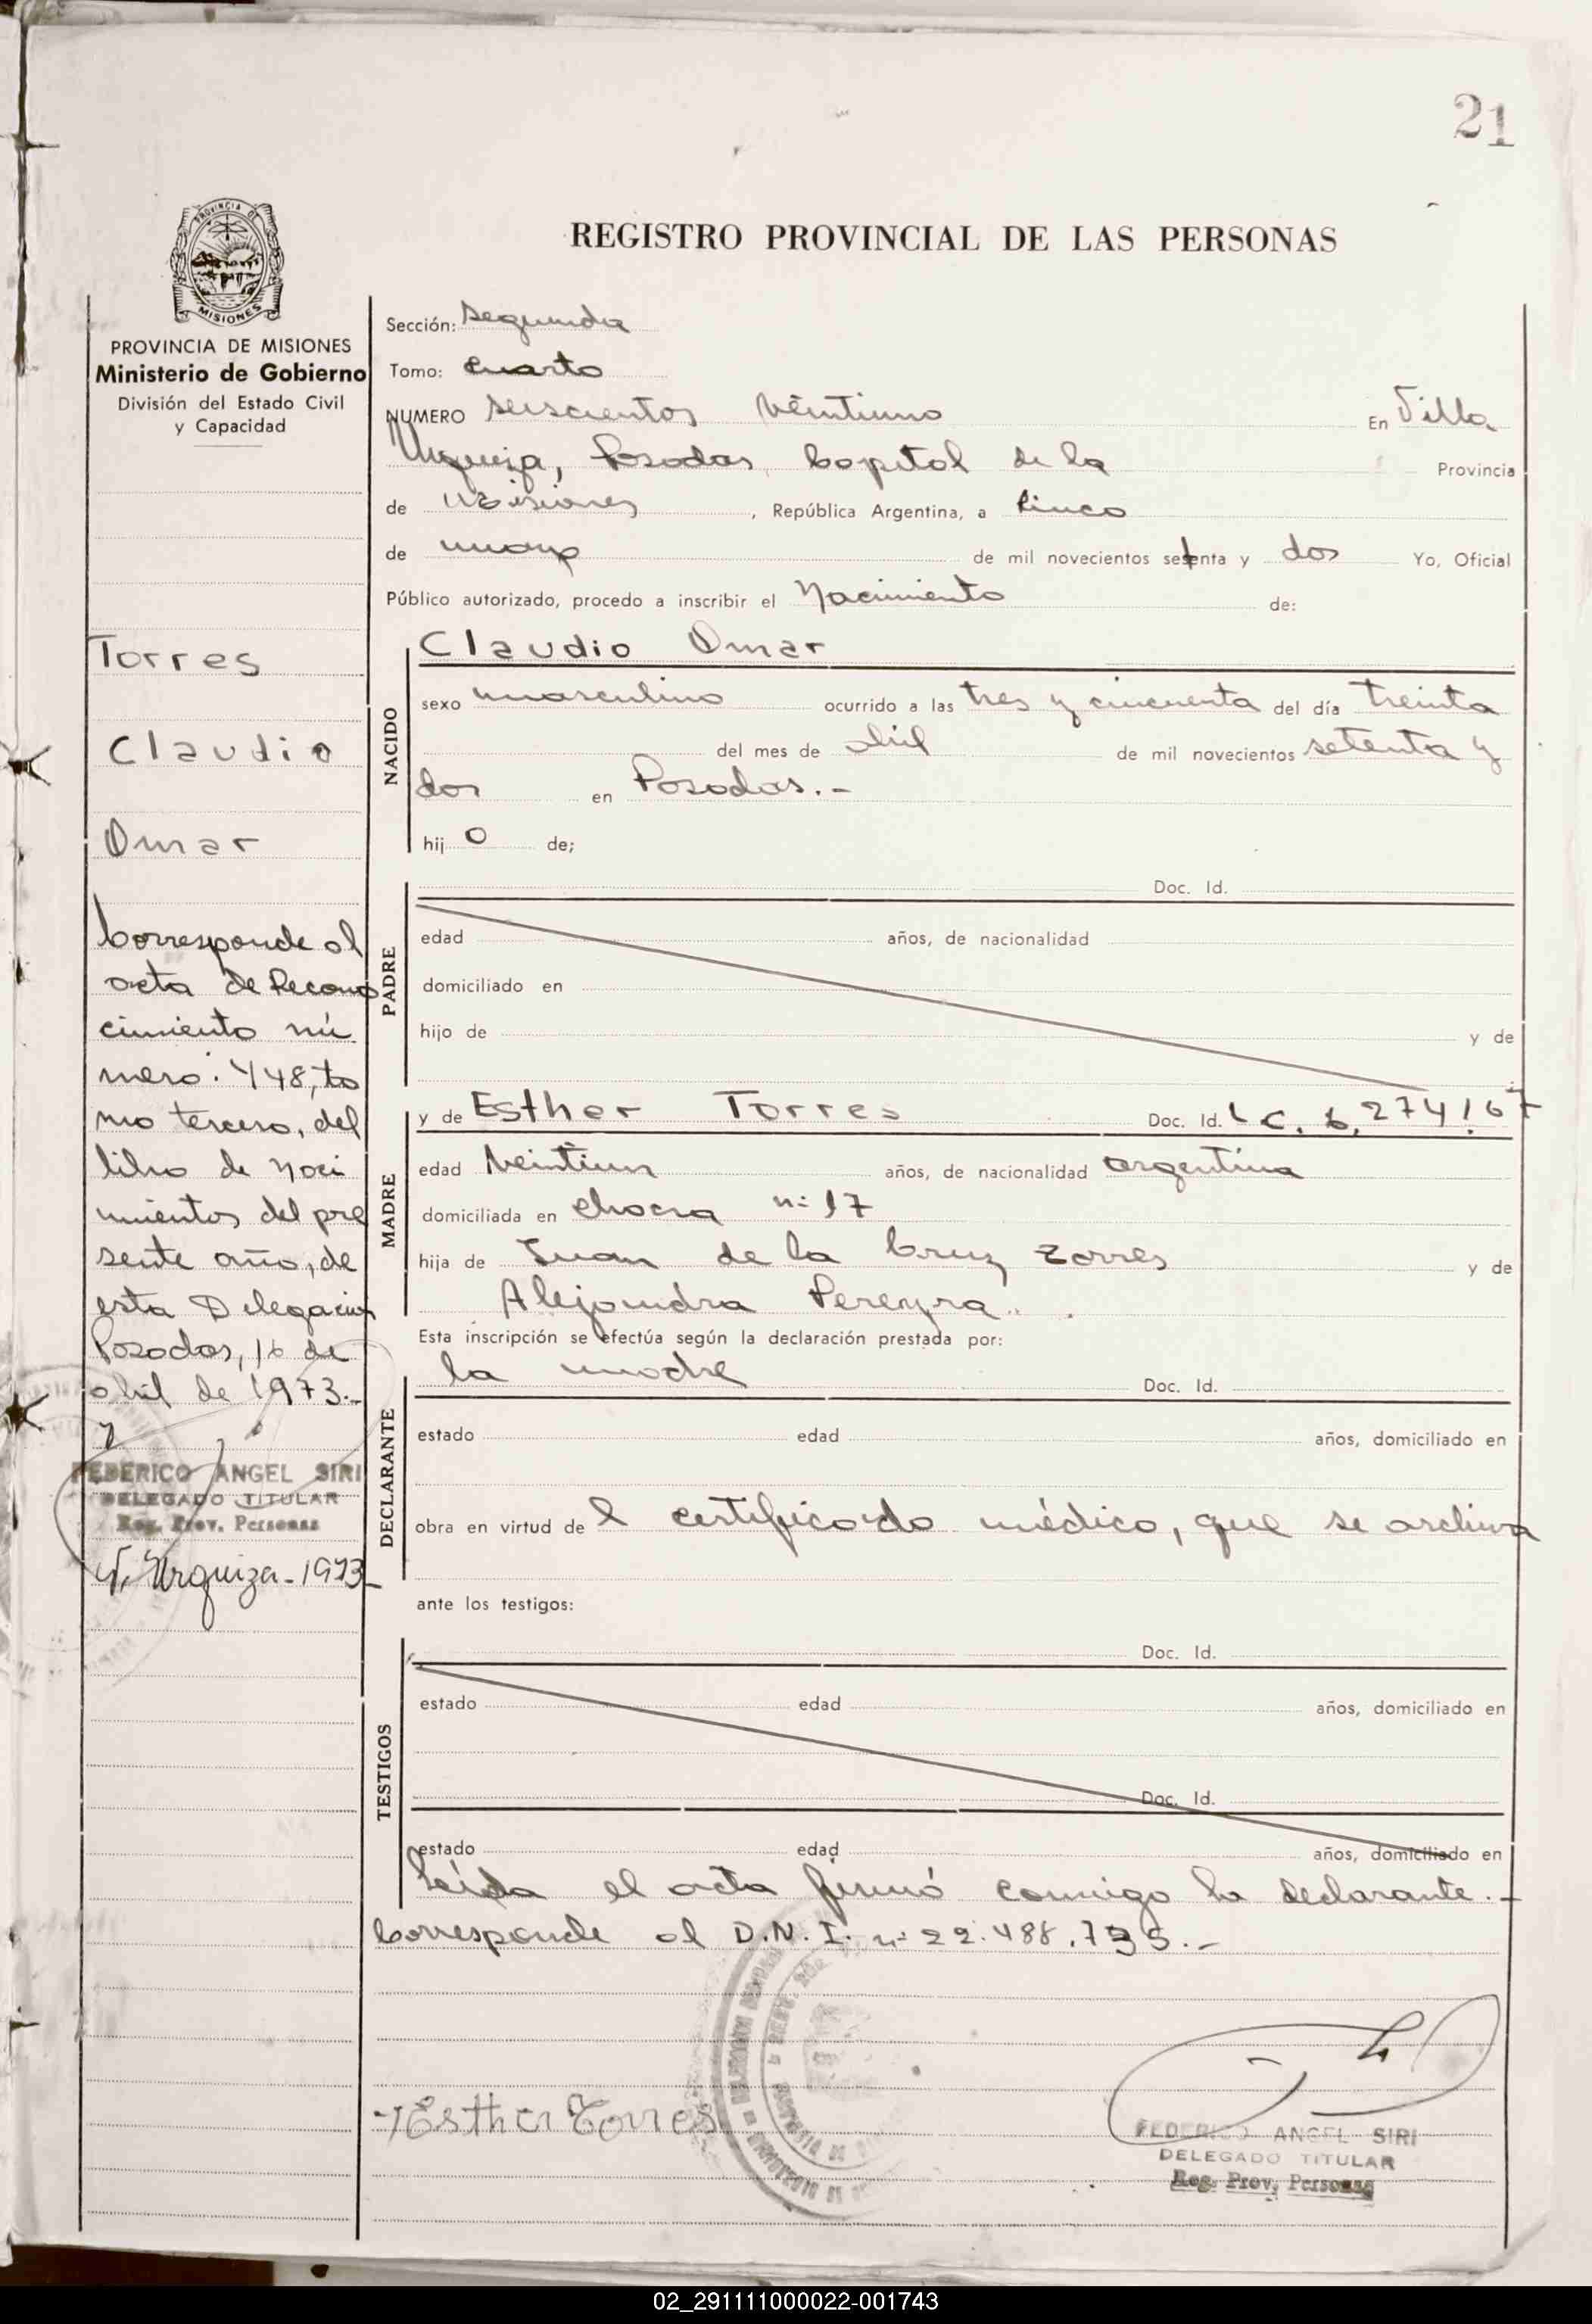 21
PROVINCIA DE
MISIONES
REGISTRO PROVINCIAL DE LAS PERSONAS
PROVINCIA DE MISIONES
Ministerio de Gobierno
División del Estado Civil
y Capacidad
Torres
Claudio
Omar
Corresponde al
acta de Recono
cimiento nú
mero: 448, to
mo tercero, del
libro de Naci
mientos del pre
sente año, de
esta Delegación
Posadas, 16 de
abril de 1973.-
FEDERICO ANGEL SIRI
DELEGADO TITULAR
Reg. Prov. Personas
V. Urquiza - 1973
Sección: Segunda
Tomo: Cuarto
NUMERO Seiscientos Veintiuno En Villa
Urquiza, Posadas Capital de la Provincia
de Misiones, República Argentina, a Cinco
de mayo de mil novecientos setenta y dos Yo, Oficial
Público autorizado, procedo a inscribir el Nacimiento de:
NACIDO
Claudio Omar
sexo masculino ocurrido a las tres y cincuenta del día treinta
del mes de abril de mil novecientos setenta y
dos en Posadas.-
hijo de;
PADRE
Doc. Id.
edad años, de nacionalidad
domiciliado en
hijo de y de
MADRE
y de Esther Torres Doc. Id. L C. 6.274.167
edad Veintiun años, de nacionalidad argentina
domiciliada en chacra nº 17
hija de Juan de la Cruz Torres y de
Alejandra Pereyra.
Esta inscripción se efectúa según la declaración prestada por:
DECLARANTE
la madre Doc. Id.
estado edad años, domiciliado en
obra en virtud del certificado médico, que se archiva
ante los testigos:
TESTIGOS
Doc. Id.
estado edad años, domiciliado en
Doc. Id.
estado edad años, domiciliado en
Leída el acta firmó conmigo la declarante.-
Corresponde al D.N.I. nº 22.488.735.-
Esther Torres
FEDERICO ANGEL SIRI
DELEGADO TITULAR
Reg. Prov. Personas
02_291111000022-001743